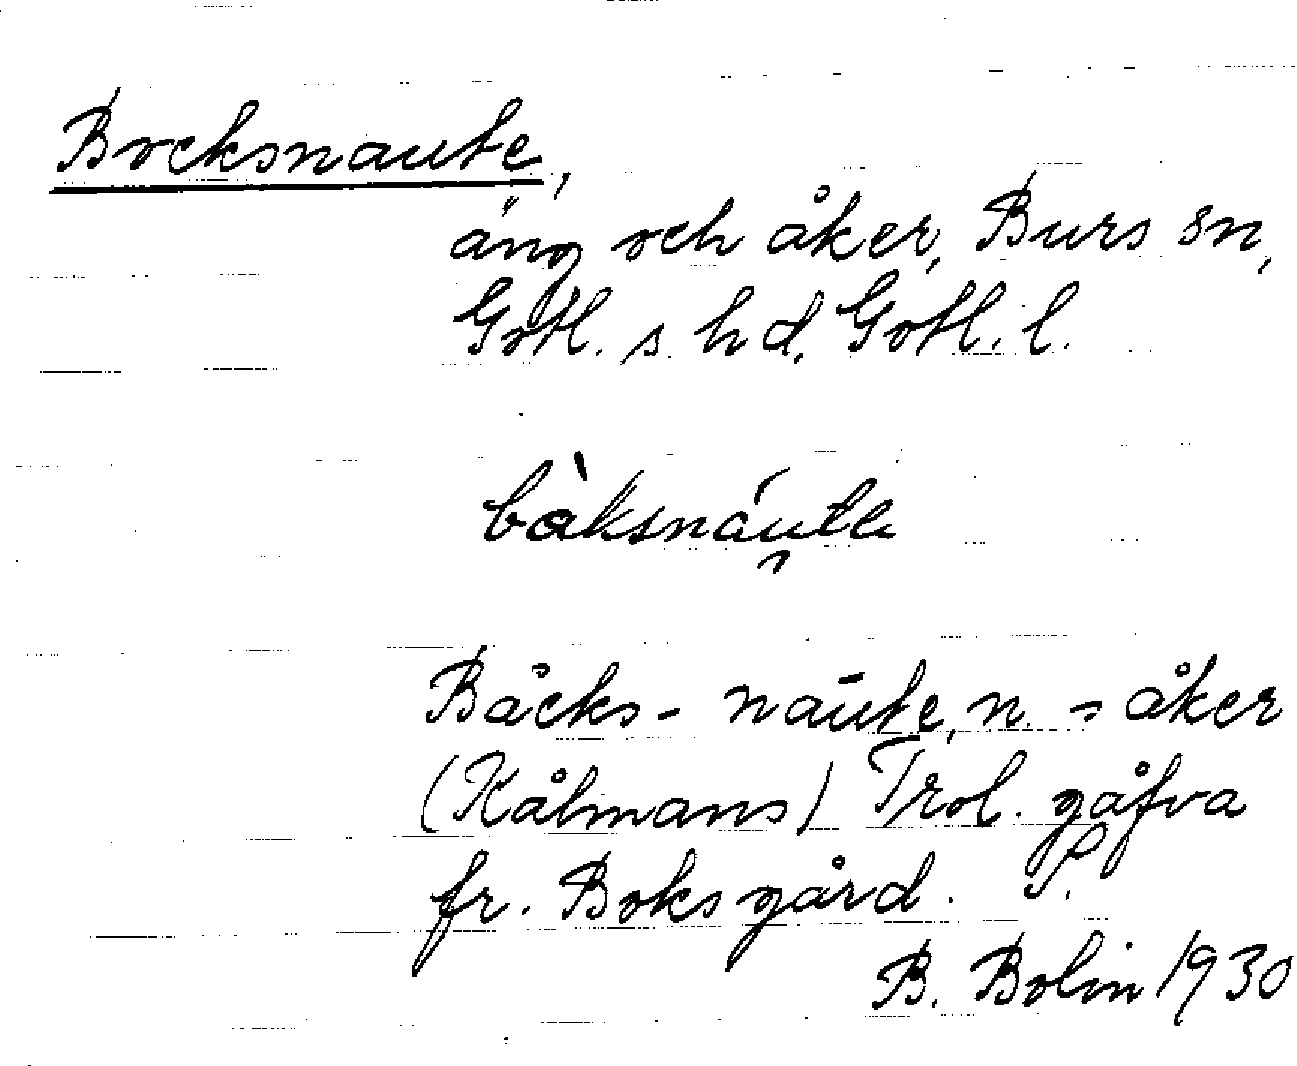 Bocksnaute,
äng och åker, Burs sn,
Gotl. s. hd, Gotl. l.
bàksnáu̯te
Båcks- naūte, n. = åker
(Kålmans) Trol. gåfva
fr. Boks gård. P.
B. Bolin 1930